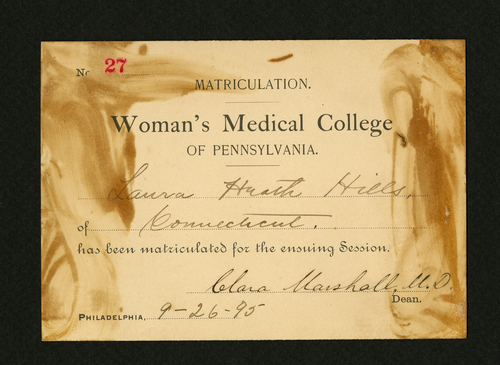 No 27
MATRICULATION.
Woman's Medical College
OF PENNSYLVANIA.
Laura Heath Hills,
of Connecticut.
has been matriculated for the ensuing Session.
Clara Marshall, M.D.
Dean.
PHILADELPHIA, 9-26-95